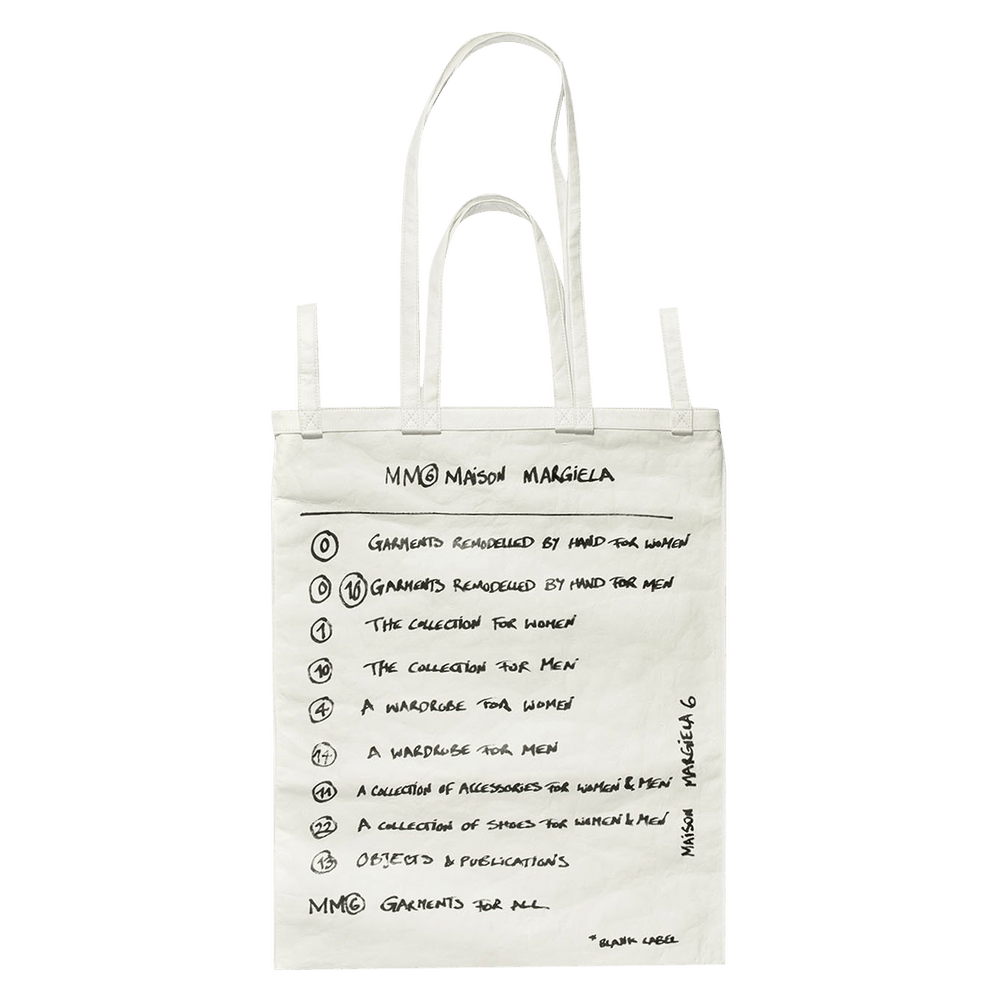 MM6 MAISON MARGIELA
0 GARMENTS REMODELLED BY HAND FOR WOMEN
0 10 GARMENTS REMODELLED BY HAND FOR MEN
1 THE COLLECTION FOR WOMEN
10 THE COLLECTION FOR MEN
4 A WARDROBE FOR WOMEN
14 A WARDROBE FOR MEN
11 A COLLECTION OF ACCESSORIES FOR WOMEN & MEN
22 A COLLECTION OF SHOES FOR WOMEN & MEN
13 OBJECTS & PUBLICATIONS
MM6 GARMENTS FOR ALL
*BLANK LABEL
MAISON MARGIELA 6